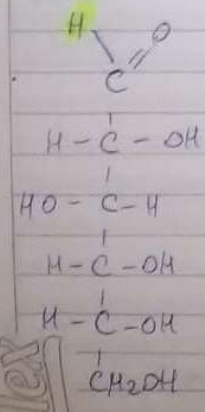 H O
C
H - C - OH
HO - C - H
H - C - OH
H - C - OH
CH2OH
lex